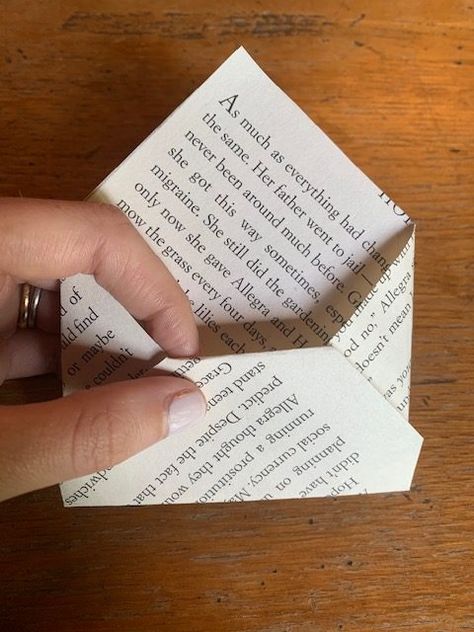 HOP
As much as everything had chang
the same. Her father went to jail
never been around much before. Ga
she got this way sometimes, esp
migraine. She still did the gardenin
only now she gave Allegra and H
mow the grass every four days,
likes each
d of
ld find
or maybe
couldn't
od no," Allegra
doesn't mean
as you
getti
Grace
stand teen
predict. Despite the fact that
Allegra thought they wou
running a prostitution
social currency. Ma
planning on u
didn't have
Hop
dwiches